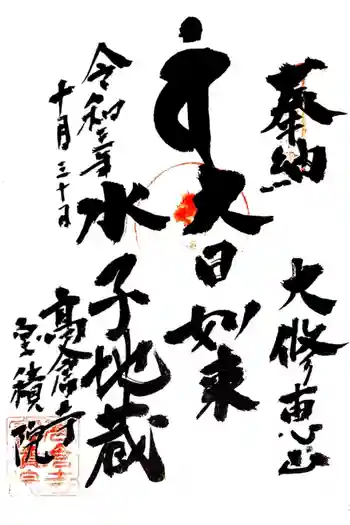 奉納
大修恵山
大日如来
水子地蔵
令和二年
十月三十日
高倉寺
宝積院